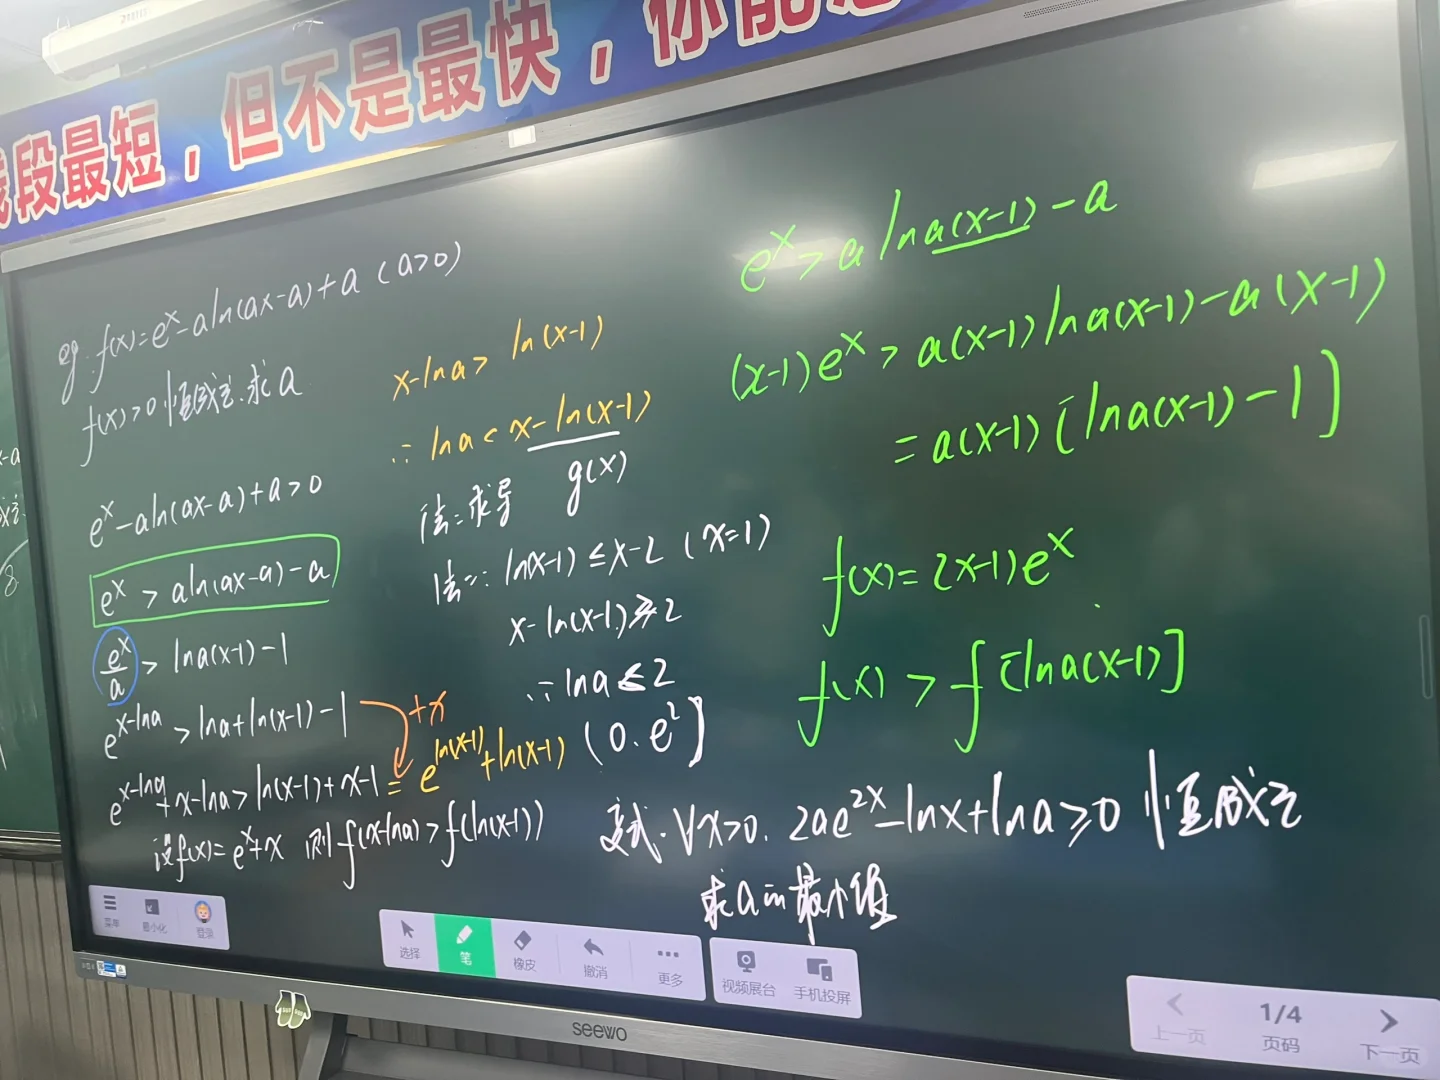 段最短，但不是最快，你能
eg: f(x)=e^x-aln(ax-a)+a (a>0)
f(x)>0 恒成立.求a
e^x-aln(ax-a)+a>0
e^x > aln(ax-a)-a
e^x/a > lna(x-1)-1
e^(x-lna) > lna+ln(x-1)-1
+x
e^(x-lna)+x-lna>ln(x-1)+x-1 = e^(ln(x-1))+ln(x-1)
设f(x)=e^x+x 则 f(x-lna)>f(ln(x-1))
x-lna> ln(x-1)
∴ lna< x-ln(x-1)
g(x)
法一:求导
法二: ln(x-1)≤x-2 (x=1)
x-ln(x-1)≥2
∴ lna≤2
(0.e²]
e^x > a lna(x-1)-a
(x-1)e^x > a(x-1)lna(x-1)-a(x-1)
= a(x-1)[lna(x-1)-1]
f(x)=(x-1)e^x
f(x) > f[lna(x-1)]
变式.∀x>0. 2ae^(2x)-lnx+lna≥0 恒成立
求a的最小值
菜单
最小化
登录
选择
笔
橡皮
撤消
更多
视频展台
手机投屏
1/4
上一页
页码
下一页
seewo